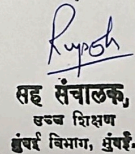 Rupesh
सह संचालक,
उच्च शिक्षण
मुंबई विभाग, मुंबई.